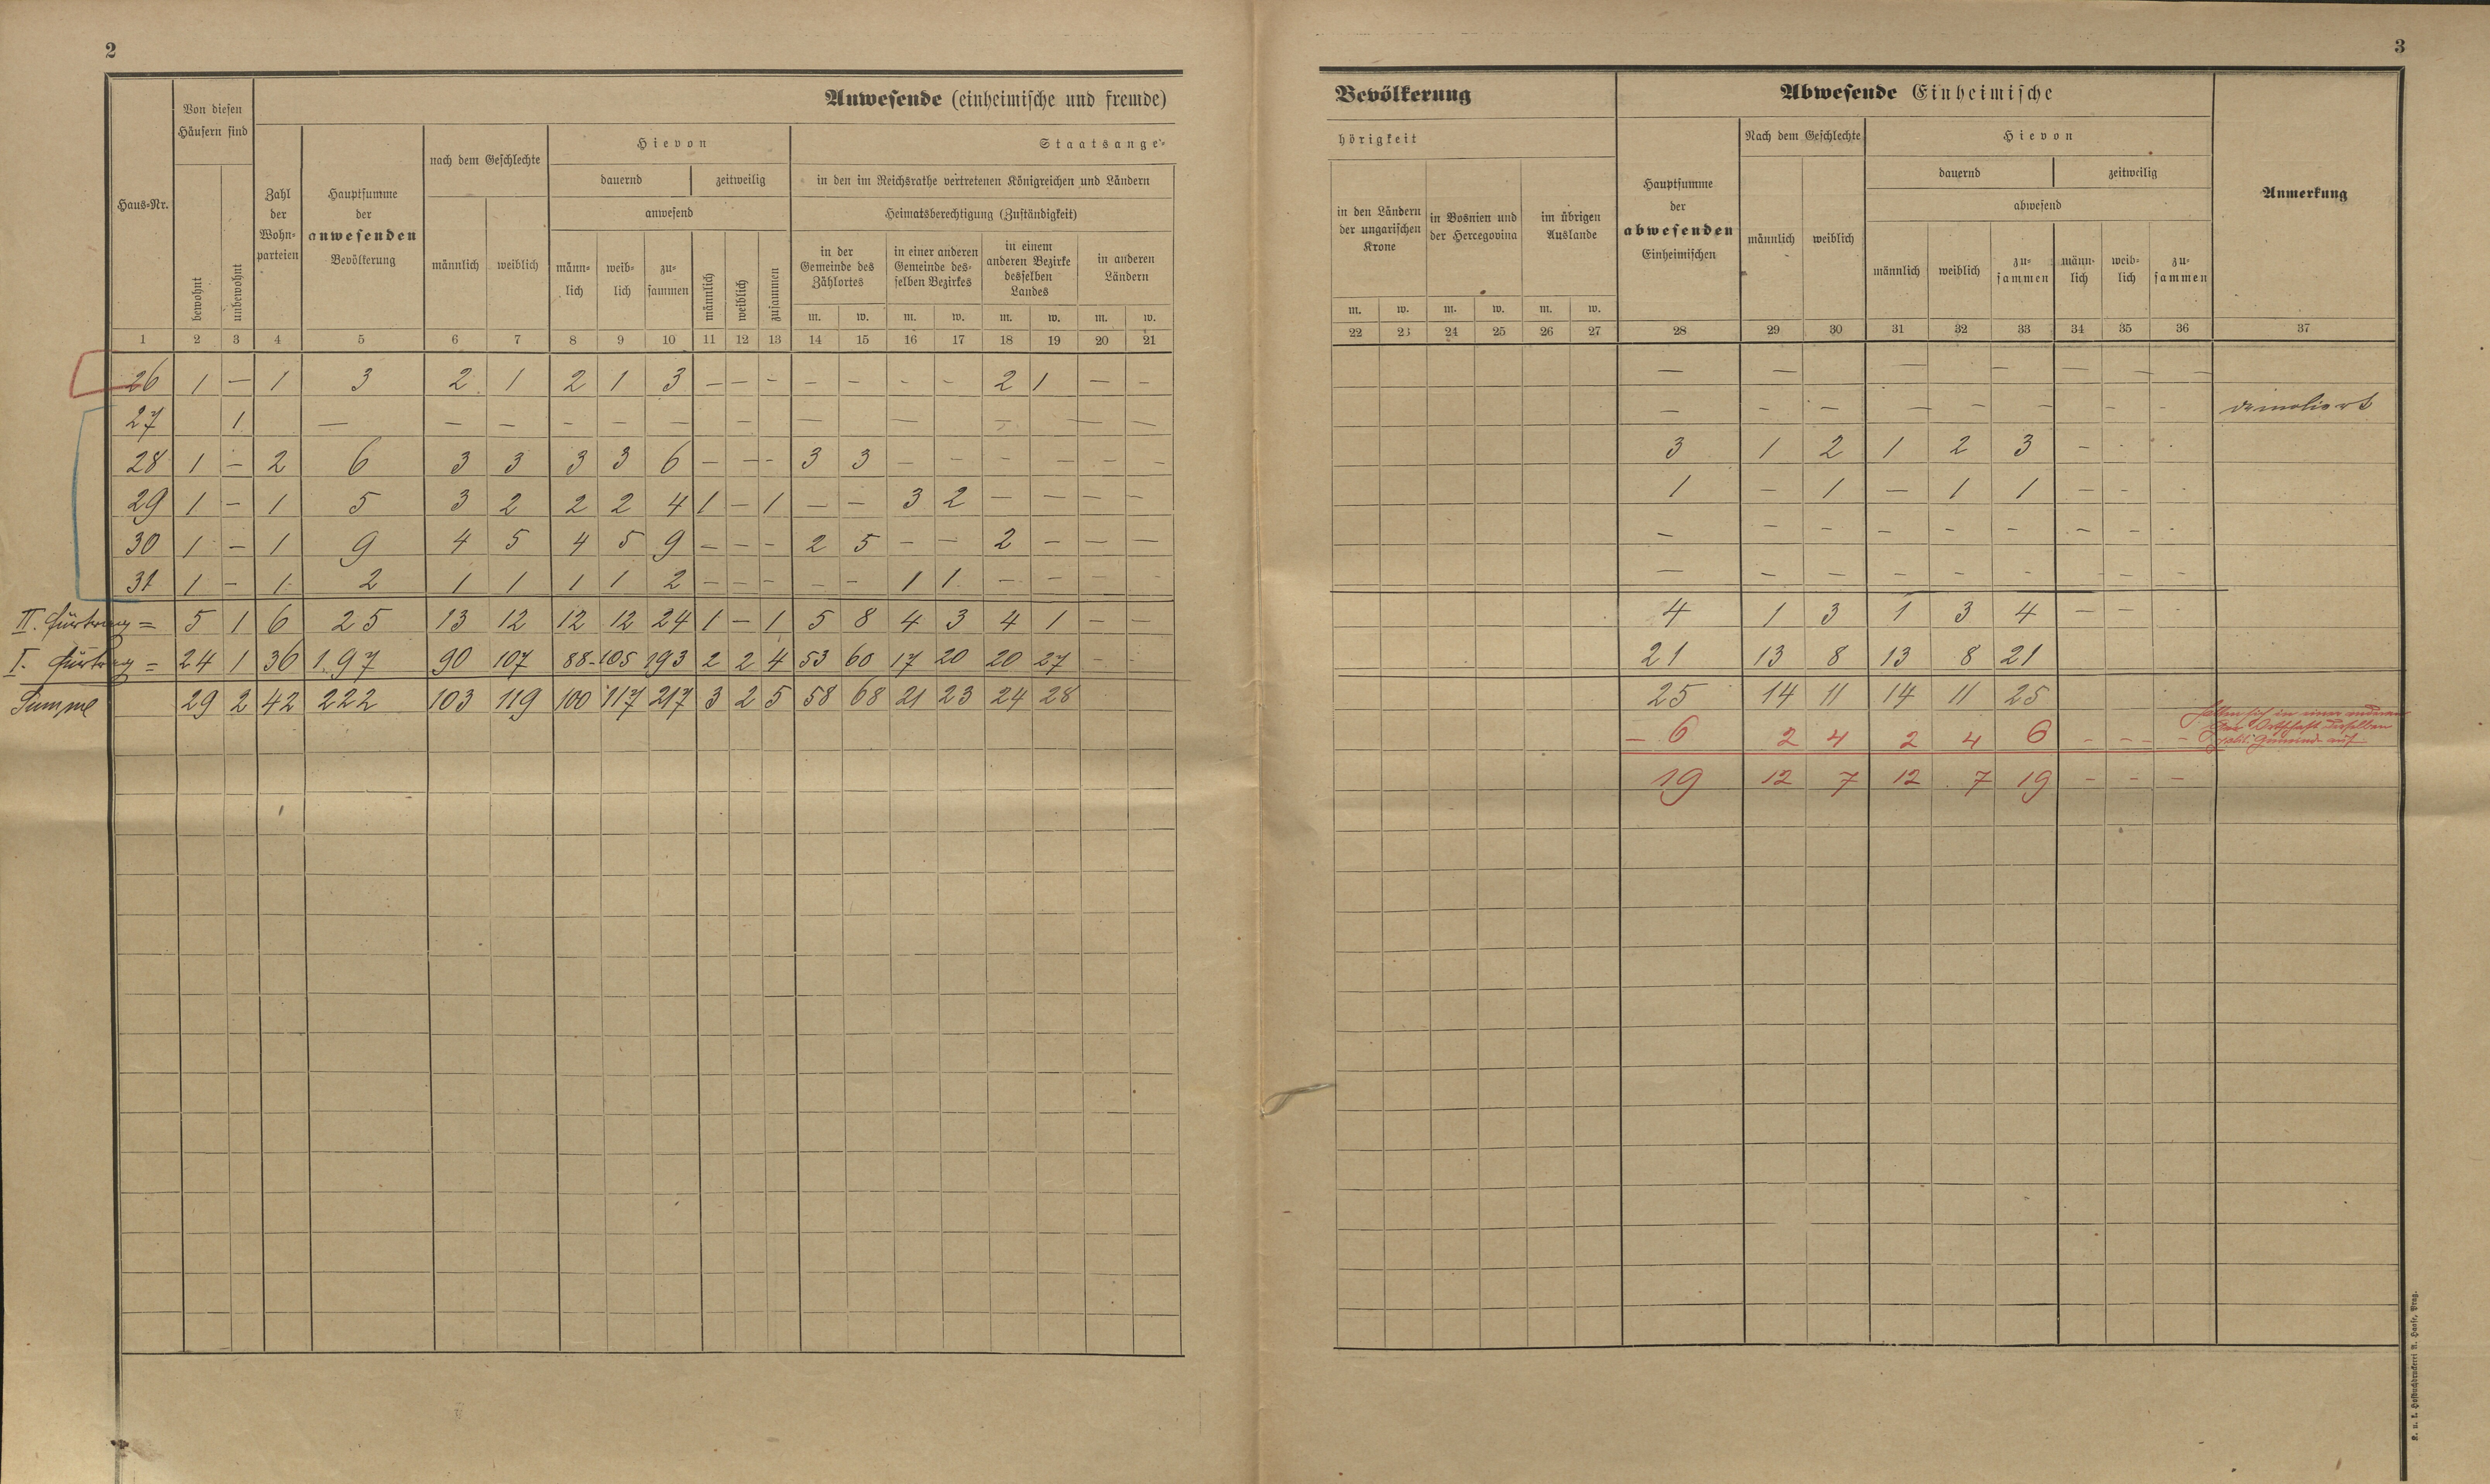 2
3
Anwesende (einheimische und fremde)
Bevölkerung
Abwesende Einheimische
Haus-Nr.
Von diesen
Häusern sind
bewohnt
unbewohnt
Zahl
der
Wohn-
parteien
Hauptsumme
der
anwesenden
Bevölkerung
nach dem Geschlechte
männlich
weiblich
Hievon
dauernd
zeitweilig
anwesend
männ-
lich
weib-
lich
zu-
sammen
männlich
weiblich
zusammen
Staatsange-
in den im Reichsrathe vertretenen Königreichen und Ländern
Heimatsberechtigung (Zuständigkeit)
in der
Gemeinde des
Zählortes
in einer anderen
Gemeinde des-
selben Bezirkes
in einem
anderen Bezirke
desselben
Landes
in anderen
Ländern
m. w. m. w. m. w. m. w.
hörigkeit
in den Ländern
der ungarischen
Krone
in Bosnien und
der Hercegovina
im übrigen
Auslande
m. w. m. w. m. w.
Hauptsumme
der
abwesenden
Einheimischen
Nach dem Geschlechte
männlich
weiblich
Hievon
dauernd
zeitweilig
abwesend
männlich
weiblich
zu-
sammen
männ-
lich
weib-
lich
zu-
sammen
Anmerkung
1 2 3 4 5 6 7 8 9 10 11 12 13 14 15 16 17 18 19 20 21
22 23 24 25 26 27 28 29 30 31 32 33 34 35 36 37
26 1 — 1 3 2 1 2 1 3 — — — — — — — 2 1 — — — — — — — — — — —
27 1 — — — — — — — — — — — — — — — — — — — — demoliert
28 1 — 2 6 3 3 3 3 6 — — — 3 3 — — — — — — 3 1 2 1 2 3 — - -
29 1 — 1 5 3 2 2 2 4 1 — 1 — — 3 2 — — — — 1 — 1 — 1 1 — - -
30 1 — 1 9 4 5 4 5 9 — — — 2 5 — — 2 — — — — — — — — — — — -
31 1 — 1 2 1 1 1 1 2 — — — — — 1 1 — — — — — — — — — — — — —
II. Fürtrag = 5 1 6 25 13 12 12 12 24 1 — 1 5 8 4 3 4 1 — — 4 1 3 1 3 4 — — -
I. Fürtrag = 24 1 36 197 90 107 88 105 193 2 2 4 53 60 17 20 20 27 — - 21 13 8 13 8 21
Summe 29 2 42 222 103 119 100 117 217 3 2 5 58 68 21 23 24 28 25 14 11 14 11 25
— 6 2 4 2 4 6 — — — halten sich in einer anderen
Ortschaft derselben
polit. Gemeinde auf
19 12 7 12 7 19 — — —
K. u. k. Hofbuchdruckerei A. Haase, Prag.